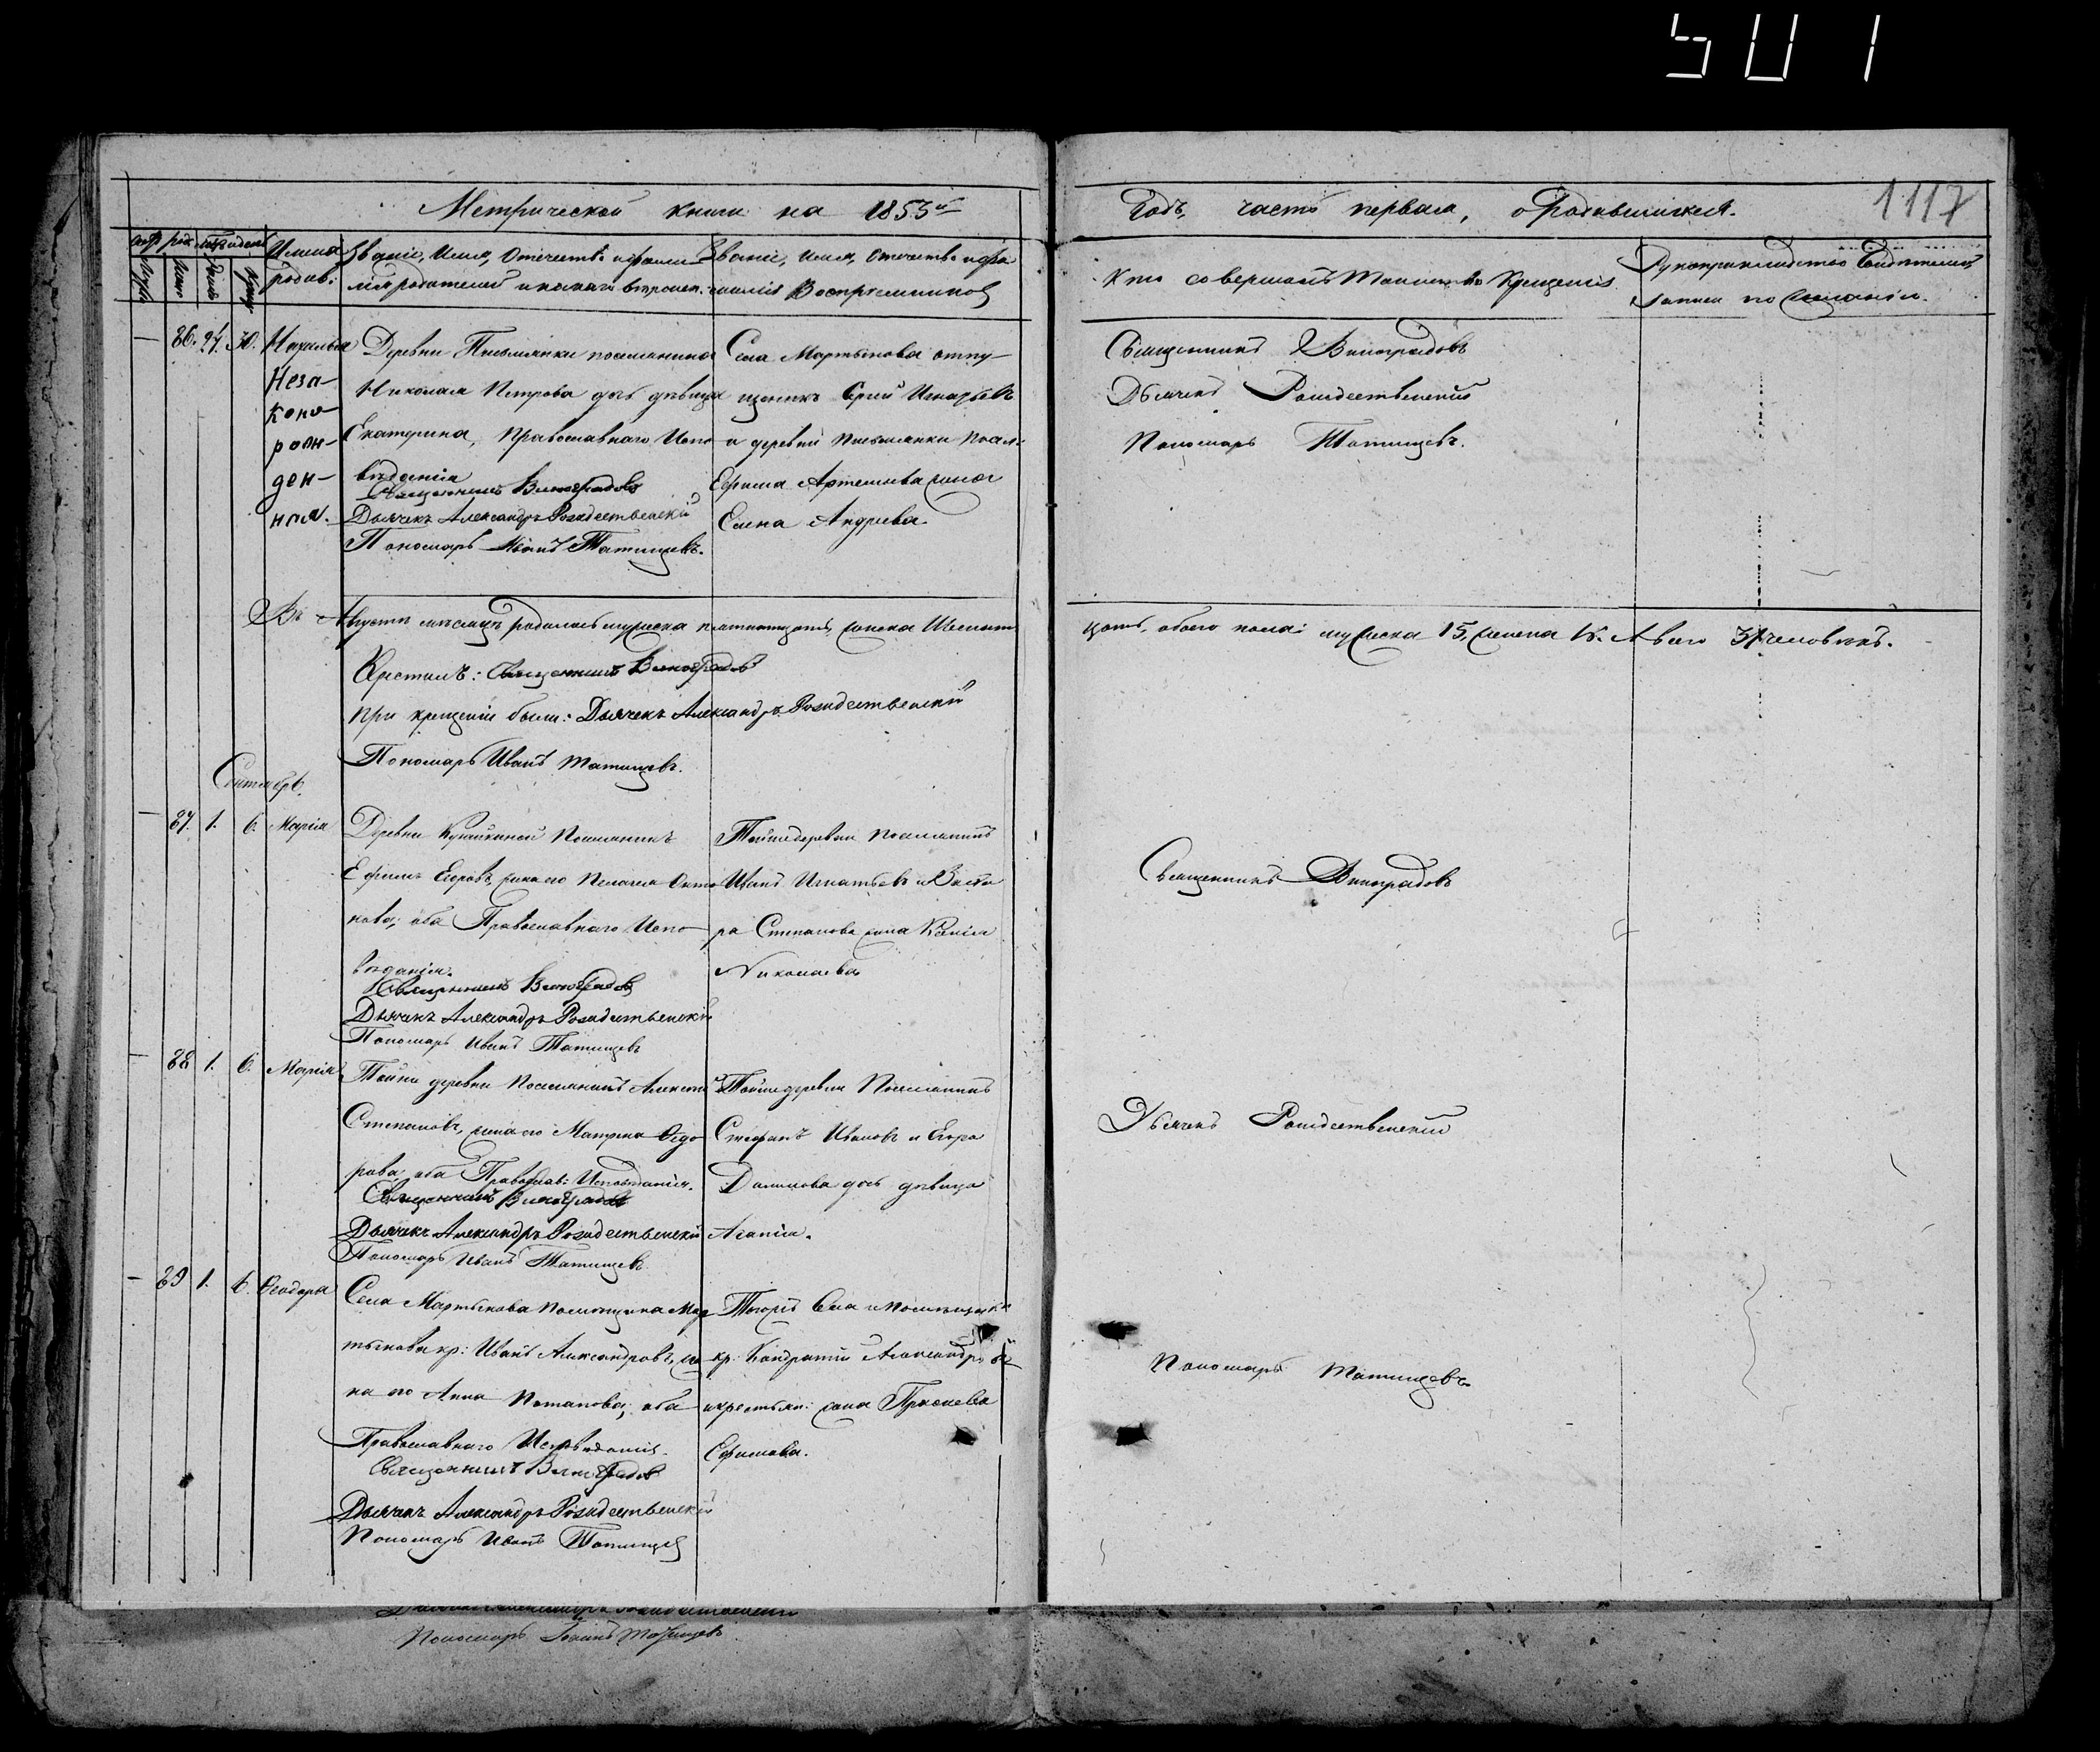 501
1117
Метрической книги на 1853й
Годъ, часть первая, о Родившихся.
Имена родив:
Званіе, Имя, Отечество и фами-
лія родителей и какого вѣроисп.
Званіе, имя, отечество и фа-
милія Воспріемниковъ
Кто совершалъ Таинство Крещенія
Рукоприкладство Свидѣтелей
записи по желанію.
— 86. 27. 30. Наталья
Неза-
коно-
рож-
ден-
ная.
Деревни Письмянки поселянина
Николая Петрова дочь дѣвица
Екатерина, Православнаго Испо
вѣданія
Священникъ Виноградовъ
Дьячекъ Александръ Рождественскій
Пономарь Иванъ Татищевъ.
Села Мартынова отпу-
щенникъ Сергій Игнатьевъ
и деревни Письмянки посел:
Ефима Артемьева жена
Елена Андреева.
Священникъ Виноградовъ
Дьячекъ Рождественскій
Пономарь Татищевъ.
Въ Августѣ мѣсяцѣ родилось мужеска пятнатцать, женска Шестнат
цать, обоего пола: мужеска 15, женска 16. А всего 31 человѣкъ.
Крестилъ: Священникъ Виноградовъ
При крещеніи были: Дьячекъ Александръ Рождественскій
Пономарь Иванъ Татищевъ.
Сентябрь.
— 87. 1. 6. Марія
Деревни Поселянинъ
Ефимъ Егоровъ, жена его Пелагея
нова; оба Православнаго Испо-
вѣданія.
Священникъ Виноградовъ
Дьячекъ Александръ Рождественскій
Пономарь Иванъ Татищевъ
Тойже деревни Поселянинъ
Иванъ Игнатьевъ и
ра Степанова жена Ксенія
Николаева
Священникъ Виноградовъ
— 88 1. 6. Марія
Тойже деревни Поселянинъ Алексей
Степановъ, жена его Матрена Ѳедо
рова, оба Православ: Исповѣданія.
Священникъ Виноградовъ
Дьячекъ Александръ Рождественскій
Пономарь Иванъ Татищевъ
Тойже деревни Поселянинъ
Стефанъ Ивановъ и Егора
Данилова дочь дѣвица
Агапія.
Дьячекъ Рождественскій
— 89 1. 6. Ѳеодора
Села Мартынова помѣщика Мар
тынова кр: Иванъ Александровъ, же
на его Анна Потапова; оба
Православнаго Исповѣданія.
Священникъ Виноградовъ
Дьячекъ Александръ Рождественскій
Пономарь Иванъ Татищевъ
Тогожъ Села и помѣщика
кр: Кондратій Александровъ
и крестьян: жена
Ефимова.
Пономарь Татищевъ
Пономарь Татищевъ